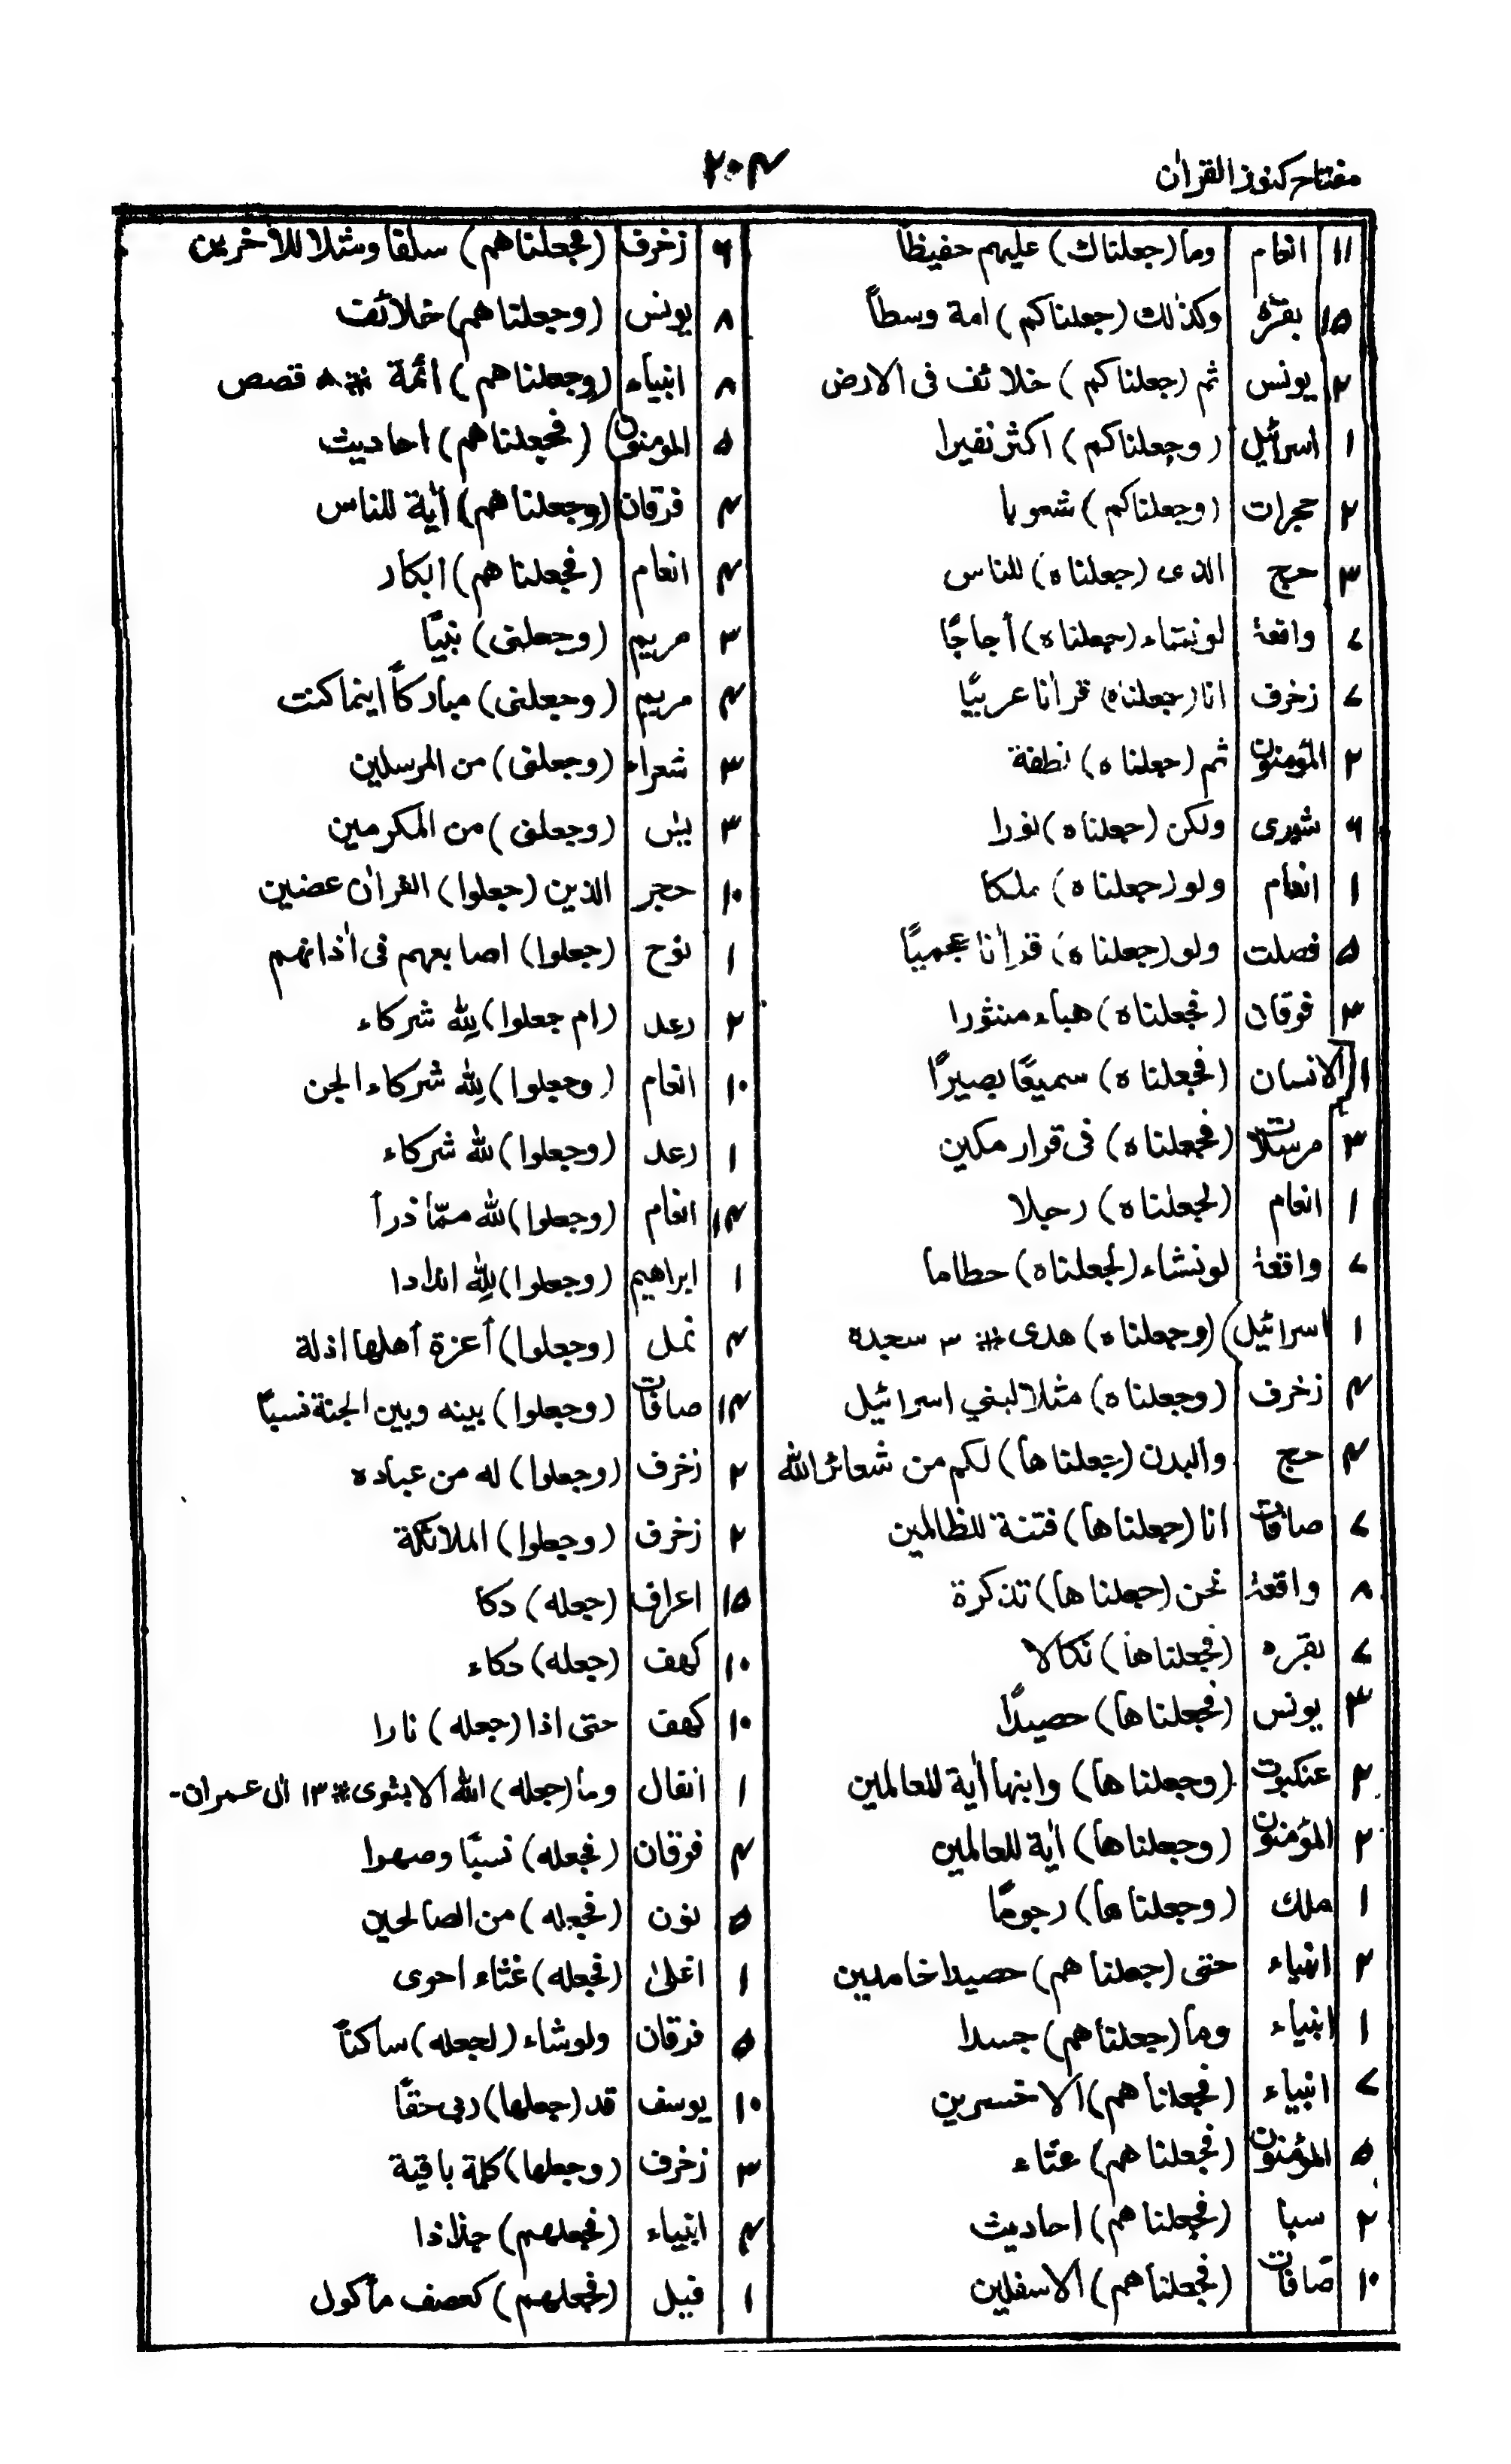 مفتاح كنوز القرأن
٢٠٤
١١ انعام وما (جعلناك) عليهم حفيظاً
١٥ بقره وكذٰلك (جعلناكم) امة وسطاً
٢ يونس ثم (جعلناكم) خلائف فى الارض
١ اسرائيل (وجعلناكم) اكثر نفيرا
٢ حجرات (وجعلناكم) شعوبا
٣ حج الذى (جعلناه) للناس
٧ واقعة لو نشاء (جعلناه) أجاجًا
٧ زخرف انا (جعلناه) قرأنا عربيًا
٢ المؤمنون ثم (جعلناه) نطفة
٦ شورى ولكن (جعلناه) نورا
١ انعام ولو (جعلناه) ملكا
٥ فصلت ولو (جعلناه) قرأنا عجميًا
٣ فرقان (فجعلناه) هباء منثورا
١ الانسان (فجعلناه) سميعًا بصيرًا
٣ مرسلات (فجعلناه) فى قرار مكين
١ انعام (لجعلناه) رجلا
٧ واقعة لو نشاء (لجعلناه) حطاما
١ اسرائيل (وجعلناه) هدى ※ ٣ سجده
٤ زخرف (وجعلناه) مثلا لبني اسرائيل
٤ حج والبدن (جعلناها) لكم من شعائر الله
٧ صافات انا (جعلناها) فتنة للظالمين
٨ واقعة نحن (جعلناها) تذكرة
٧ بقره (فجعلناها) نكالا
٣ يونس (فجعلناها) حصيدًا
٢ عنكبوت (وجعلناها) وابنها أية للعالمين
٢ المؤمنون (وجعلناها) أية للعالمين
١ ملك (وجعلناها) رجومًا
٢ انبياء حتى (جعلناهم) حصيدا خامدين
١ انبياء وما (جعلناهم) جسدا
٧ انبياء (فجعلناهم) الاخسرين
٥ المؤمنون (فجعلناهم) غثاء
٢ سبا (فجعلناهم) احاديث
١٠ صافات (فجعلناهم) الاسفلين
٦ زخرف (فجعلناهم) سلفا ومثلا للأخرين
٨ يونس (وجعلناهم) خلائف
٨ انبياء (وجعلناهم) ائمة ※ قصص
٥ المؤمنون (فجعلناهم) احاديث
٤ فرقان (وجعلناهم) أية للناس
٤ انعام (فجعلناهم) ابكار
٣ مريم (وجعلنى) نبيًا
٤ مريم (وجعلنى) مباركاً اينما كنت
٣ شعراء (وجعلنى) من المرسلين
٣ يٰس (وجعلنى) من المكرمين
١٠ حجر الذين (جعلوا) القرأن عضين
١ نوح (جعلوا) اصابعهم فى أذانهم
٢ رعد (ام جعلوا) لِلّٰه شركاء
١٠ انعام (وجعلوا) لِلّٰه شركاء الجن
١ رعد (وجعلوا) لله شركاء
١٤ انعام (وجعلوا) لله ممّا ذرأ
١ ابراهيم (وجعلوا) لِلّٰه اندادا
٤ نمل (وجعلوا) أعزة أهلها اذلة
١٤ صافات (وجعلوا) بينه وبين الجنة نسبًا
٢ زخرف (وجعلوا) له من عباده
٢ زخرف (وجعلوا) الملائكة
١٥ اعراف (جعله) دكا
١٠ كهف (جعله) دكاء
١٠ كهف حتى اذا (جعله) نارا
١ انفال وما (جعله) الله الا بشرى ※ ١٣ أل عمران-
٤ فرقان (فجعله) نسبًا وصهرا
٥ نون (فجعله) من الصالحين
١ اعلىٰ (فجعله) غثاء احوى
٥ فرقان ولو شاء (لجعله) ساكناً
١٠ يوسف قد (جعلها) ربى حقًا
٣ زخرف (وجعلها) كلمة باقية
٤ انبياء (فجعلهم) جذاذا
١ فيل (فجعلهم) كعصف مأكول